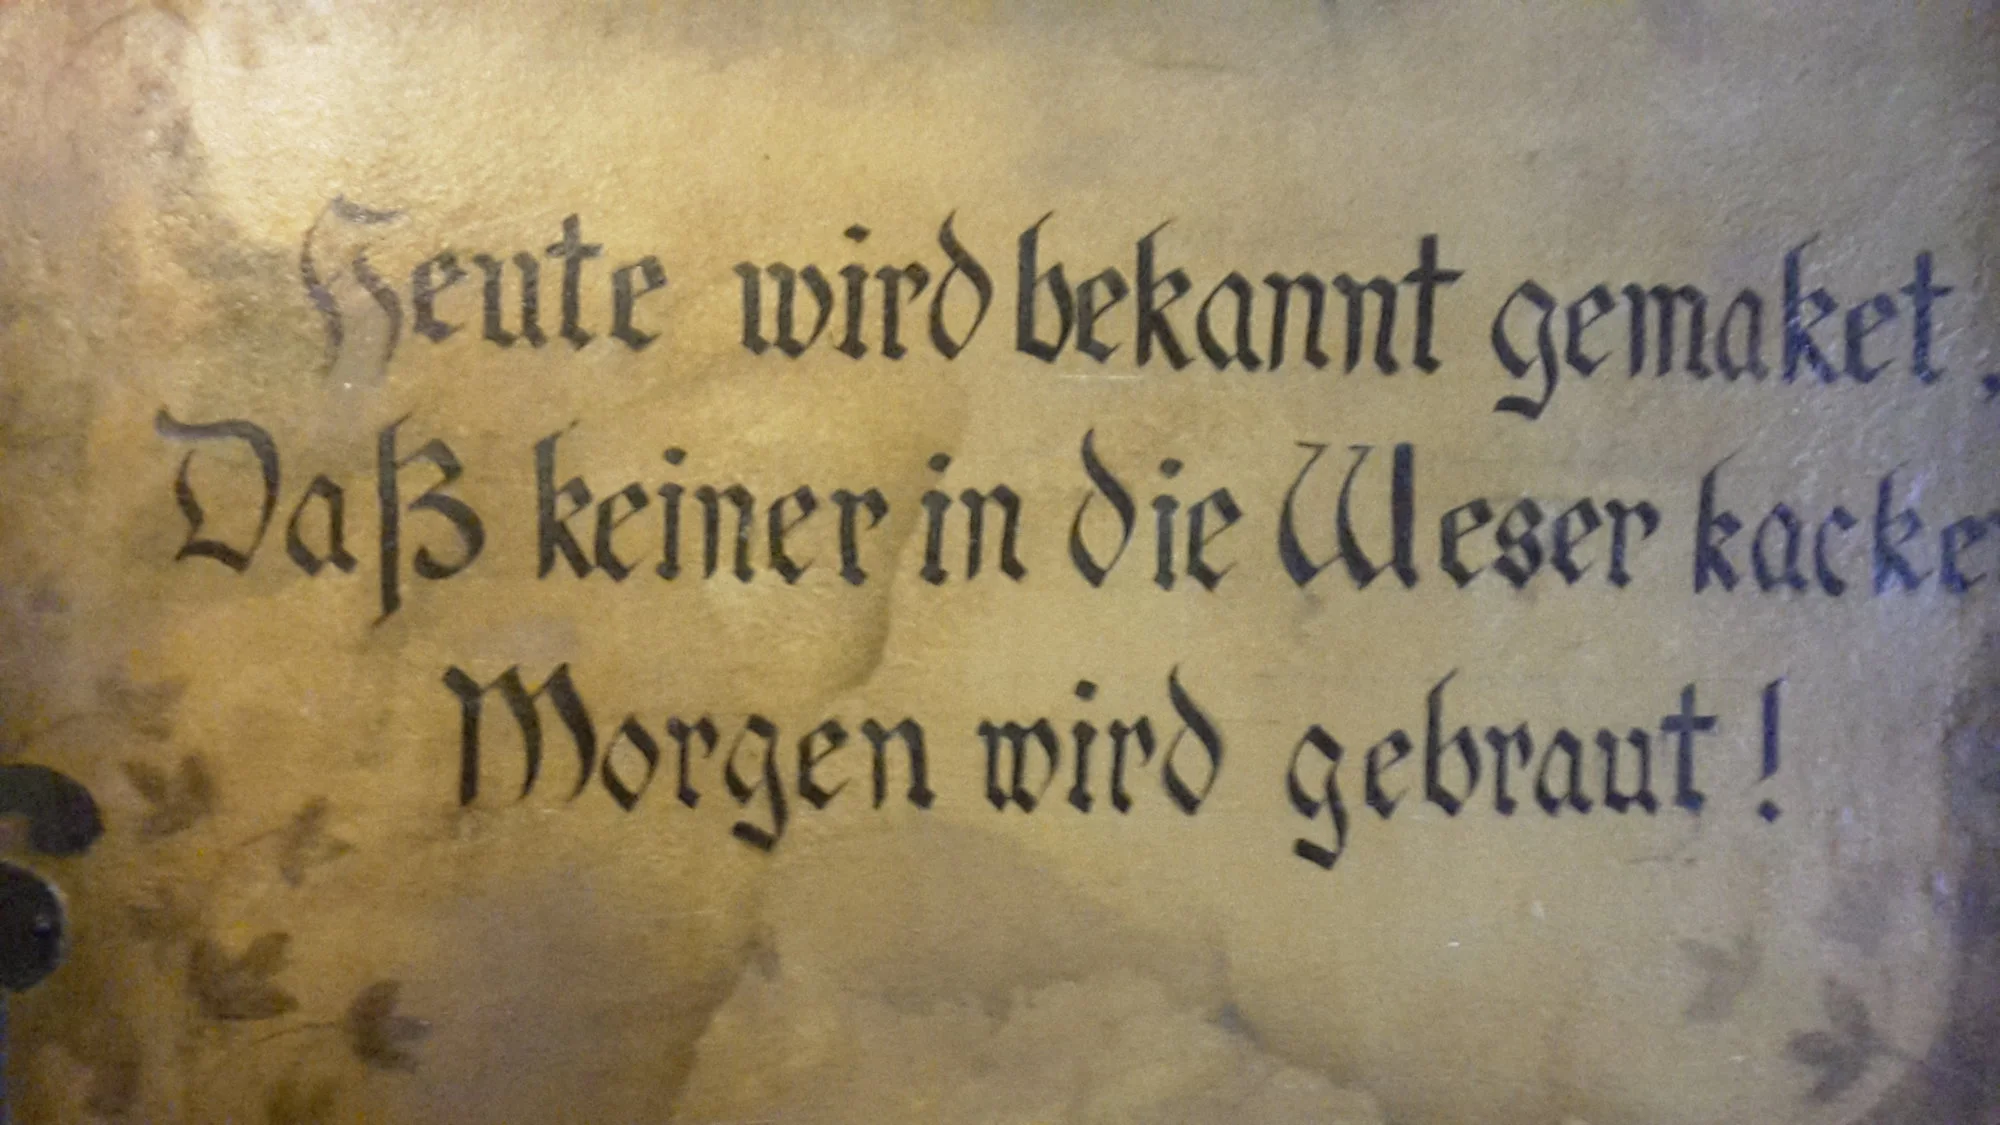 Heute wird bekannt gemaket,
Daß keiner in die Weser kacke
Morgen wird gebraut!